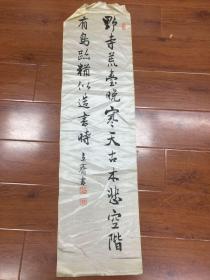 野寺荒臺晚寒天古木悲空階
有鳥跡猶似造書時